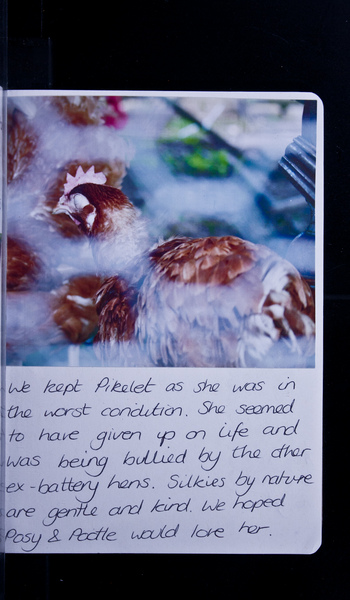 We kept Pikelet as she was in
the worst condition. She seemed
to have given up on life and
was being bullied by the other
ex-battery hens. Silkies by nature
are gentle and kind. We hoped
Posy & Pootle would love her.